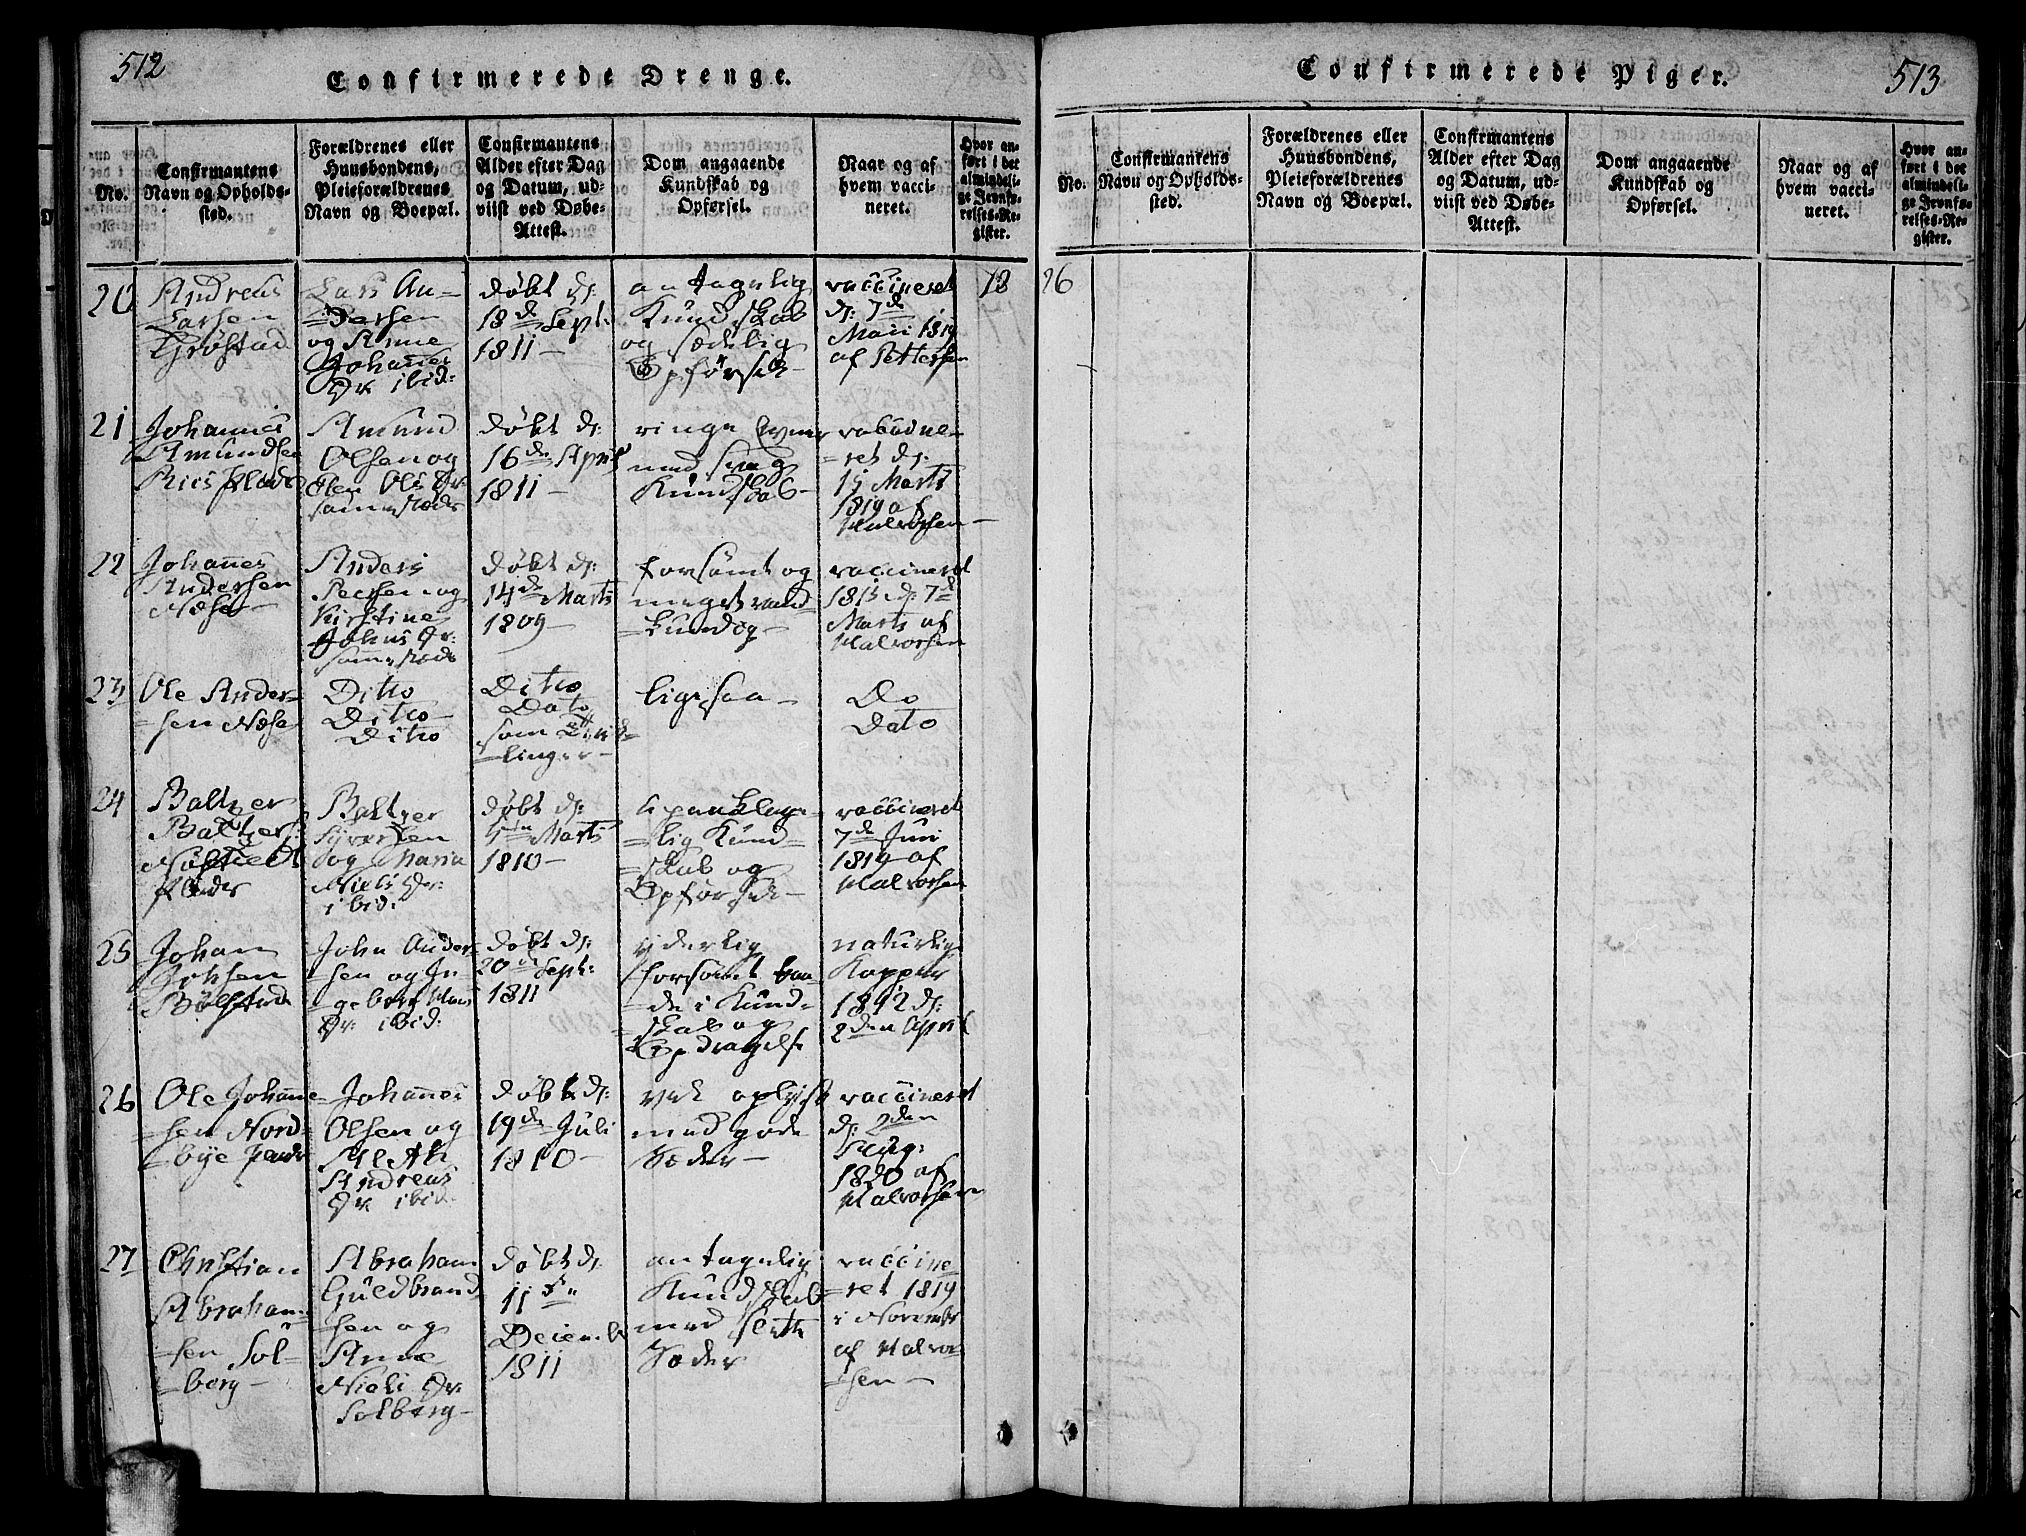 512
Confirmerede Drenge.
No.
Confirmantens
Navn og Opholds-
sted.
Forældrenes eller
Huusbondens,
Pleieforældrenes
Navn og Boepæl.
Confirmantens
Alder efter Dag
og Datum, ud-
viist ved Døbe-
Attest.
Dom angaaende
Kundskab og
Opførsel.
Naar og af
hvem vacci-
neret.
Hvor an-
ført i det
almindeli-
ge Jevnfø-
relses-Re-
gister.
20
Andreas
Larsen
Grøstad
Lars An-
=dersen
og Anne
Johannes
Dr. ibid:
døbt d:
18de Sept:
1811-
antagelig
Kundskab
og sædelig
Opførsel-
vaccineret
d: 7de
Maii 1819
af Pettersen
21
Johannes
Amundsen
Riis plads
Amund
Olsen og
Olea Ols Dr:
samesteds
døbt d:
16de April
1811-
ringe Evner
med svag
Kundskab-
vaccine-
=ret d:
15 Marts
1819 af
Halvorsen-
22
Johanes
Andersen
Næse-
Anders
Peersen og
Kirstine
Johns Dr:
samesteds
døbt d:
14de Marts
1809-
forsømt og
meget vand-
=kundig-
vaccineret
1815 d: 7de
Marts af
Halvorsen
23
Ole Ander-
=sen Næse
Ditto
Ditto
Ditto
Ditto
Dato
som Tvil-
=linger-
ligesaa-
Do
Dato
24
Baltzer
Baltzers:
plads
Baltzer
Syversen
og Maria
Niels Dr:
ibid:
døbt d:
Marts
1810-
upaaklage-
=lig Kund-
=skab og
Opførsel-
vaccineret
7de Juni
1819 af
Halvorsen
25
Johan
Johsen
Bølstad
John Ander-
=sen og In-
=geborg Hans
Dr: ibid:
døbt d:
20de Sept:
1811
yderlig
forsømt baa-
=de i Kund-
=skab og
Opdragelse
naturlige
Kopper
1812 d:
2den April
26
Ole Johanne-
=sen Nord-
=bye plads
Johannes
Olsen og
Andreas
Dr: ibid:
døbt d:
19de Juli
1810-
vel oplyst
med gode
Sæder-
vaccineret
d: 2den
Aug:
1820 af
Halvorsen
27
Christian
Abraham-
=sen Sol-
=berg-
Abraham
Guldbrand-
=sen og
Anne
Niels Dr:
Solberg-
døbt d:
11te
Decemb
1811
antagelig
Kundskab
med
Sæder
vaccine
=ret 1819
i November
af Halvor-
=sen-
Confirmerede Piger.
513
No.
Confirmantens
Navn og Opholds-
sted.
Forældrenes eller
Huusbondens,
Pleieforældrenes
Navn og Boepæl.
Confirmantens
Alder efter Dag
og Datum, ud-
viist ved Døbe-
Attest.
Dom angaaende
Kundskab og
Opførsel.
Naar og af
hvem vacci-
neret.
Hvor an-
ført i det
almindeli-
ge Jevnfø-
relses-Re-
gister.
18 26